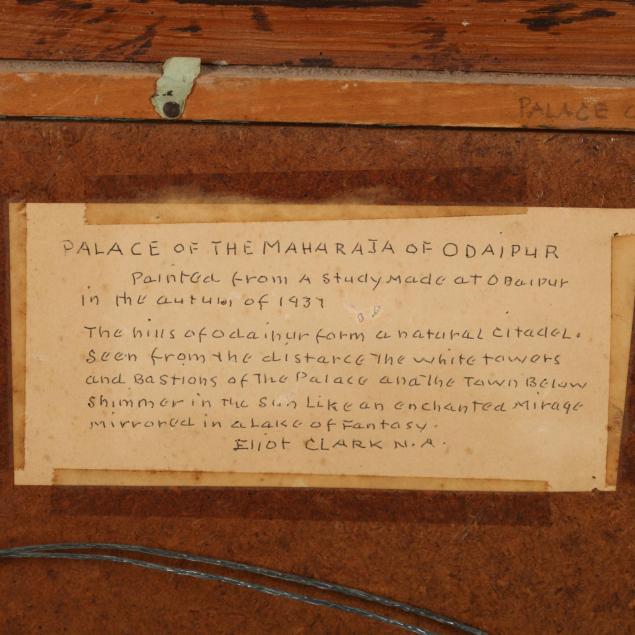 PALACE O
PALACE OF THE MAHARAJA OF ODAIPUR
Painted from A Study Made at ODaipur
in the autum of 1937
The hills of odaipur form a natural citadel.
Seen from the distance The white towers
and Bastions of The Palace and The Town Below
Shimmer in the Sun Like an enchanted Mirage
mirrored in a Lake of Fantasy.
Eliot CLARK N.A.